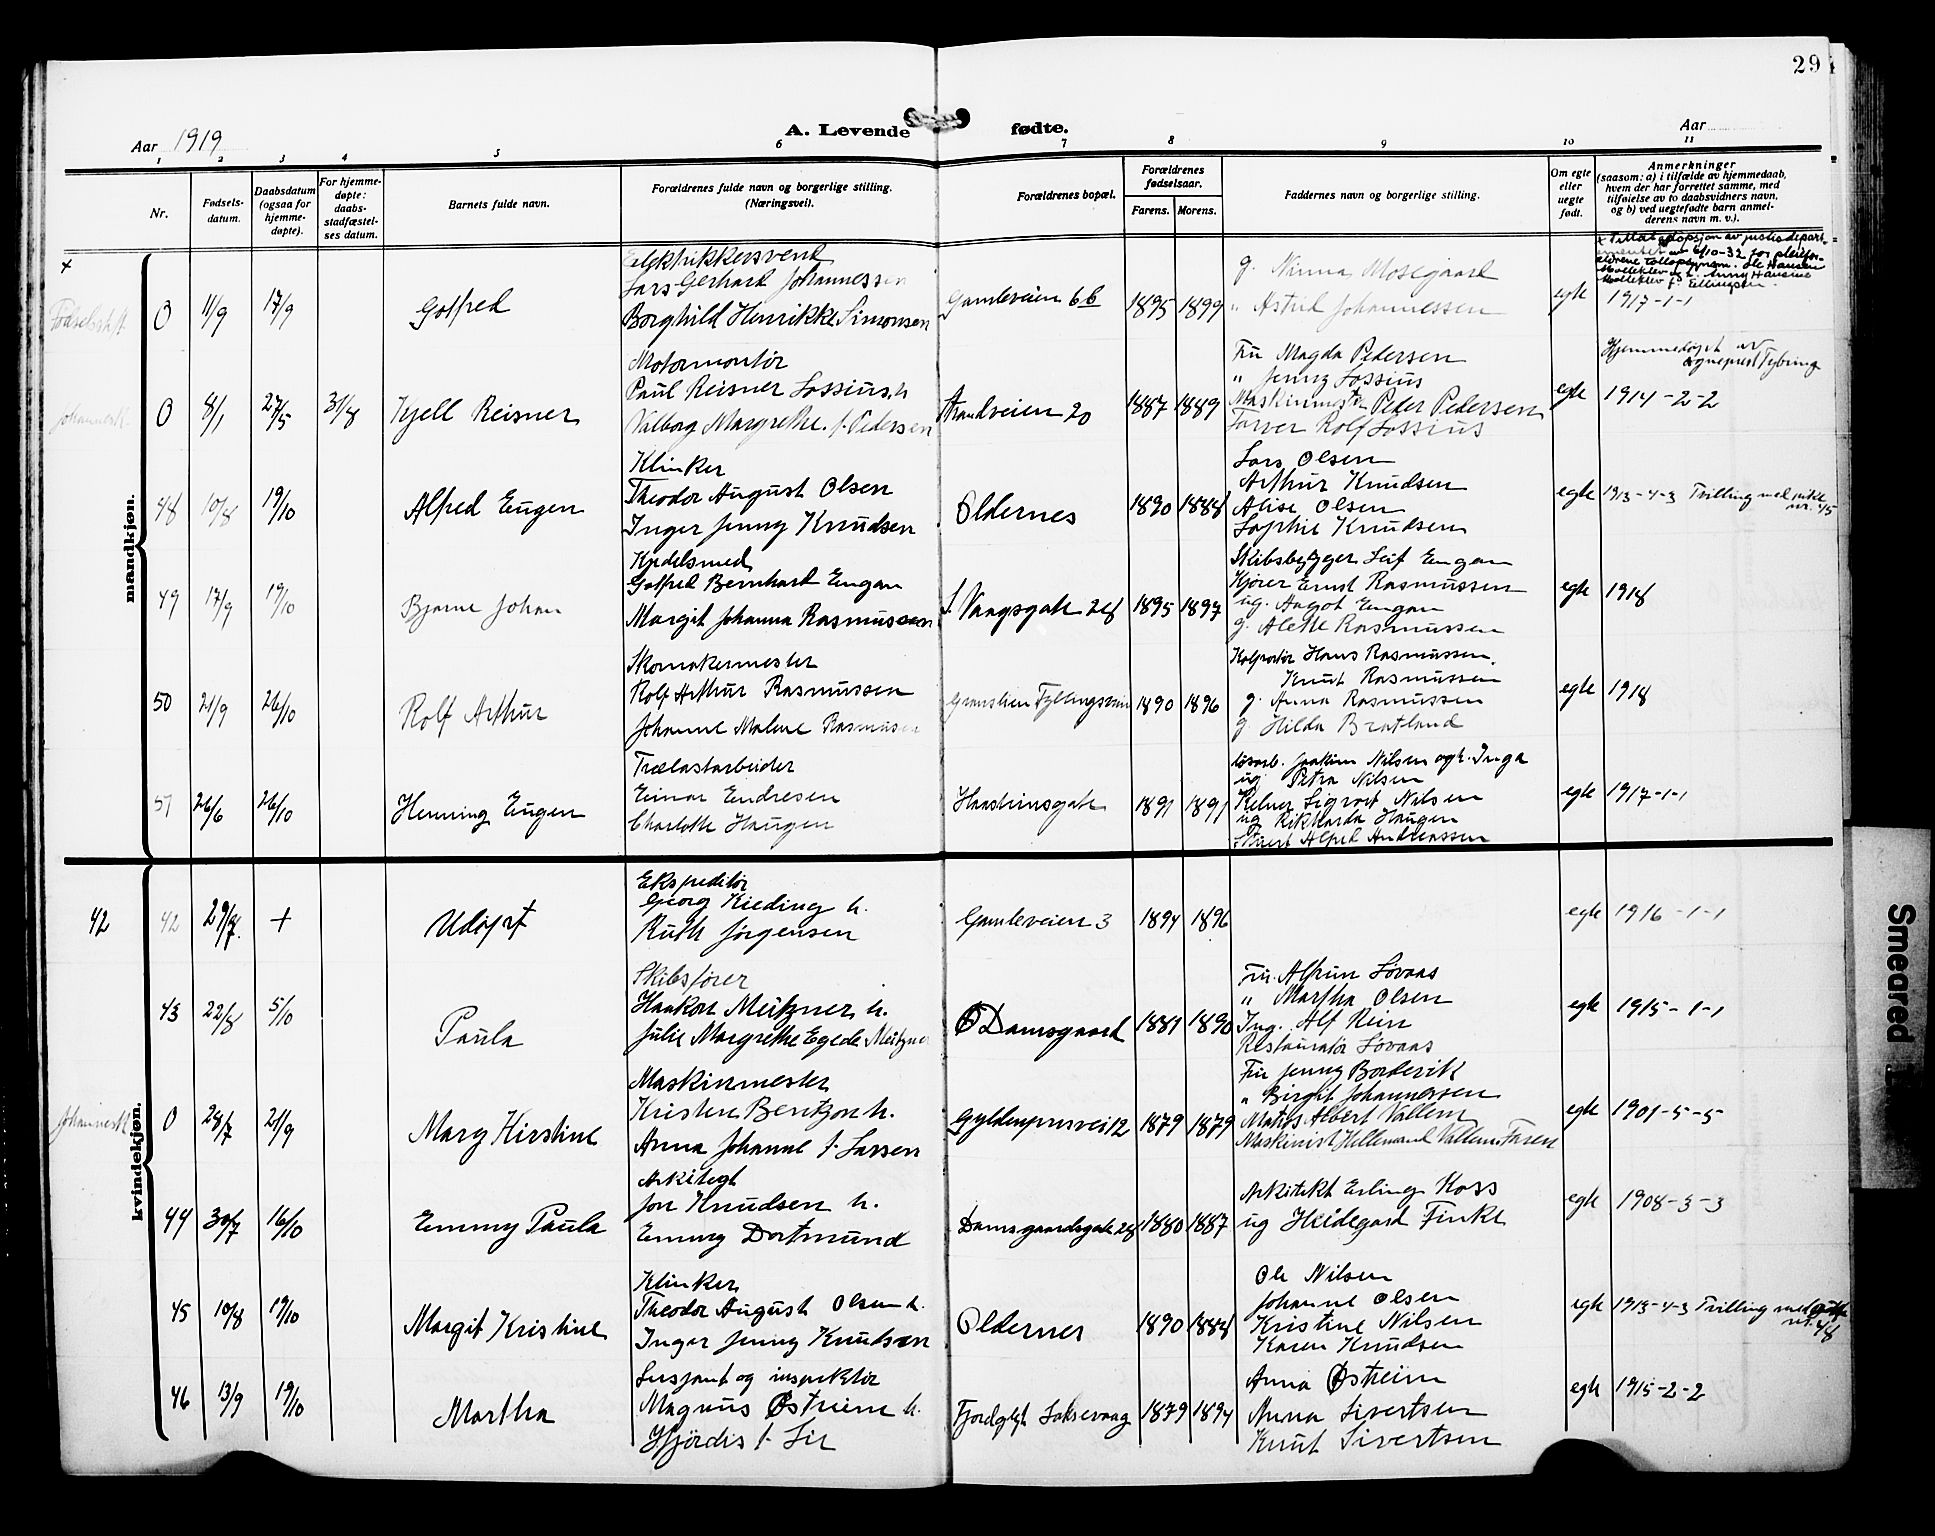 29
Aar 1919 A. Levende fødte. Aar
1 2 3 4 5 6 7 8 9 10 11
Nr.
Fødsels-
datum.
Daabsdatum
(ogsaa for
hjemme-
døpte).
For hjemme-
døpte:
daabs-
stadfæstel-
ses datum.
Barnets fulde navn.
Forældrenes fulde navn og borgerlige stilling.
(Næringsvei).
Forældrenes bopæl.
Forældrenes
fødselsaar.
Farens. Morens.
Faddernes navn og borgerlige stilling.
Om egte
eller
uegte
født.
Anmerkninger
(saasom: a) i tilfælde av hjemmedaab,
hvem der har forrettet samme, med
tilføielse av to daabsvidners navn,
og b) ved uegtefødte barn anmel-
derens navn m. v.).
mandkjøn.
x
0 11/9 17/9 Gotfred
Elektrikkersvend
Lars Gerhard Johannessen
Borghild Henrikke Simonsen
Gamleveien 6b 1895 1899
g. Ninna Mosegaard
" Astrid Johannessen
egte 1917-1-1
Johannesk.
0 8/1 27/5 31/8 Kjell Reisner
Motormontør
Paul Reisner Lossius h.
Valborg Margrethe f. Pedersen
Strandveien 20 1887 1889
Fru Magda Pedersen
" Jenny Lossius
Maskinmester Peder Pedersen
Farver Rolf Lossius
egte
Hjemmedøpt av
sogneprest Tybring
1914-2-2
48 10/8 19/10 Alfred Eugen
Klinker
Theodor August Olsen
Inger Jenny Knudsen
Oldernes 1890 1888
Lars Olsen
Arthur Knudsen
Alise Olsen
Sophie Knudsen
egte 1913-4-3 Tvilling med pike
nr. 45
49 17/9 19/10 Bjarne Johan
Kjedelsmed
Gotfred Bernhard Engan
Margit Johanna Rasmussen
1895 1897
Skibsbygger Leif Engan
Kjører Ernst Rasmussen
ug. Aagot Engan
g. Alette Rasmussen
egte 1918
50 21/9 26/10 Rolf Arthur
Skomakermester
Rolf Arthur Rasmussen
Johanne Malene Rasmussen
1890 1896
Kolportør Hans Rasmussen
Knut Rasmussen
g. Anna Rasmussen
g. Hilda Bratland
egte 1918
51 26/6 26/10 Henning Eugen
Trælastarbeider
Einar Endresen
Charlotte Haugen
1891 1891
Løsarb. Joakim Nilsen og h. Inga
ug. Petra Nilsen
Kelner Sigvart Nilsen
ug Rikharda Haugen
Alfred Andreassen
egte 1917-1-1
kvindekjøn.
42 42 29/7 + Udøpt
Ekspeditør
Georg Kieding h.
Ruth Jørgensen
Gamleveien 3 1894 1896
egte 1916-1-1
43 22/8 5/10 Paula
Skibsfører
Haakon Meitzner h.
Julie Margrethe Egede Meitzner
Damsgaard 1881 1890
Fru Alfrun Løvaas
" Martha Olsen
Ing. Alf Rein
Restauratør Løvaas
egte 1915-1-1
Johannesk.
0 28/7 21/9 Mary Kirstine
Maskinmester
Kristen Bentzon h.
Anna Johanne f. Larsen
Gyldenprisvei 12 1879 1879
Fru Jenny Borderik
" Birgit Johannessen
Matros Albert Vallem
egte 1901-5-5
44 30/7 16/10 Emmy Paula
Arkitegt
Jon Knudsen h.
Emmy Dortmund
Damsgaardsgate 28 1880 1887
Arkitekt Erling Koss
ug Heidegard Finke
egte 1908-3-3
45 10/8 19/10 Margit Kristine
Klinker
Theodor August Olsen h.
Inger Jenny Knudsen
Oldernes 1890 1888
Ole Nilsen
Johanne Olsen
Kristine Nilsen
Karen Knudsen
egte 1913-4-3 Tvilling med gutt
nr. 48
46 13/9 19/10 Martha
Sersjant og inspektør
Magnus Østreim h.
Hjørdis f. Lie
Laksevaag 1879 1894
Anna Østreim
Anna Sivertsen
Knut Sivertsen
egte 1915-2-2
Smeared